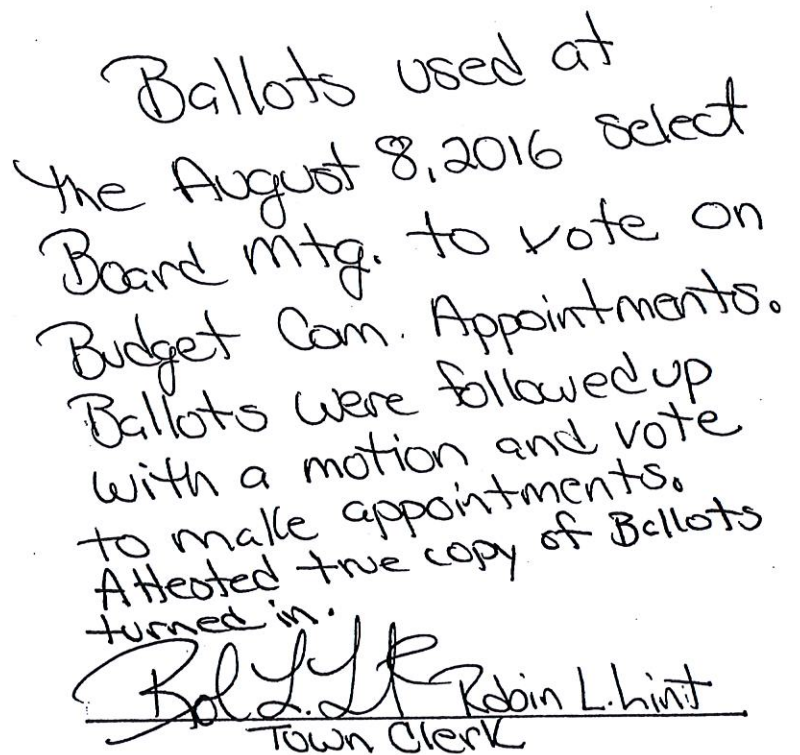 Ballots used at
the August 8, 2016 select
Board mtg. to vote on
Budget Com. Appointments.
Ballots were followed up
with a motion and vote
to make appointments.
Attested true copy of Ballots
turned in.
Robin L. Lint
Town Clerk